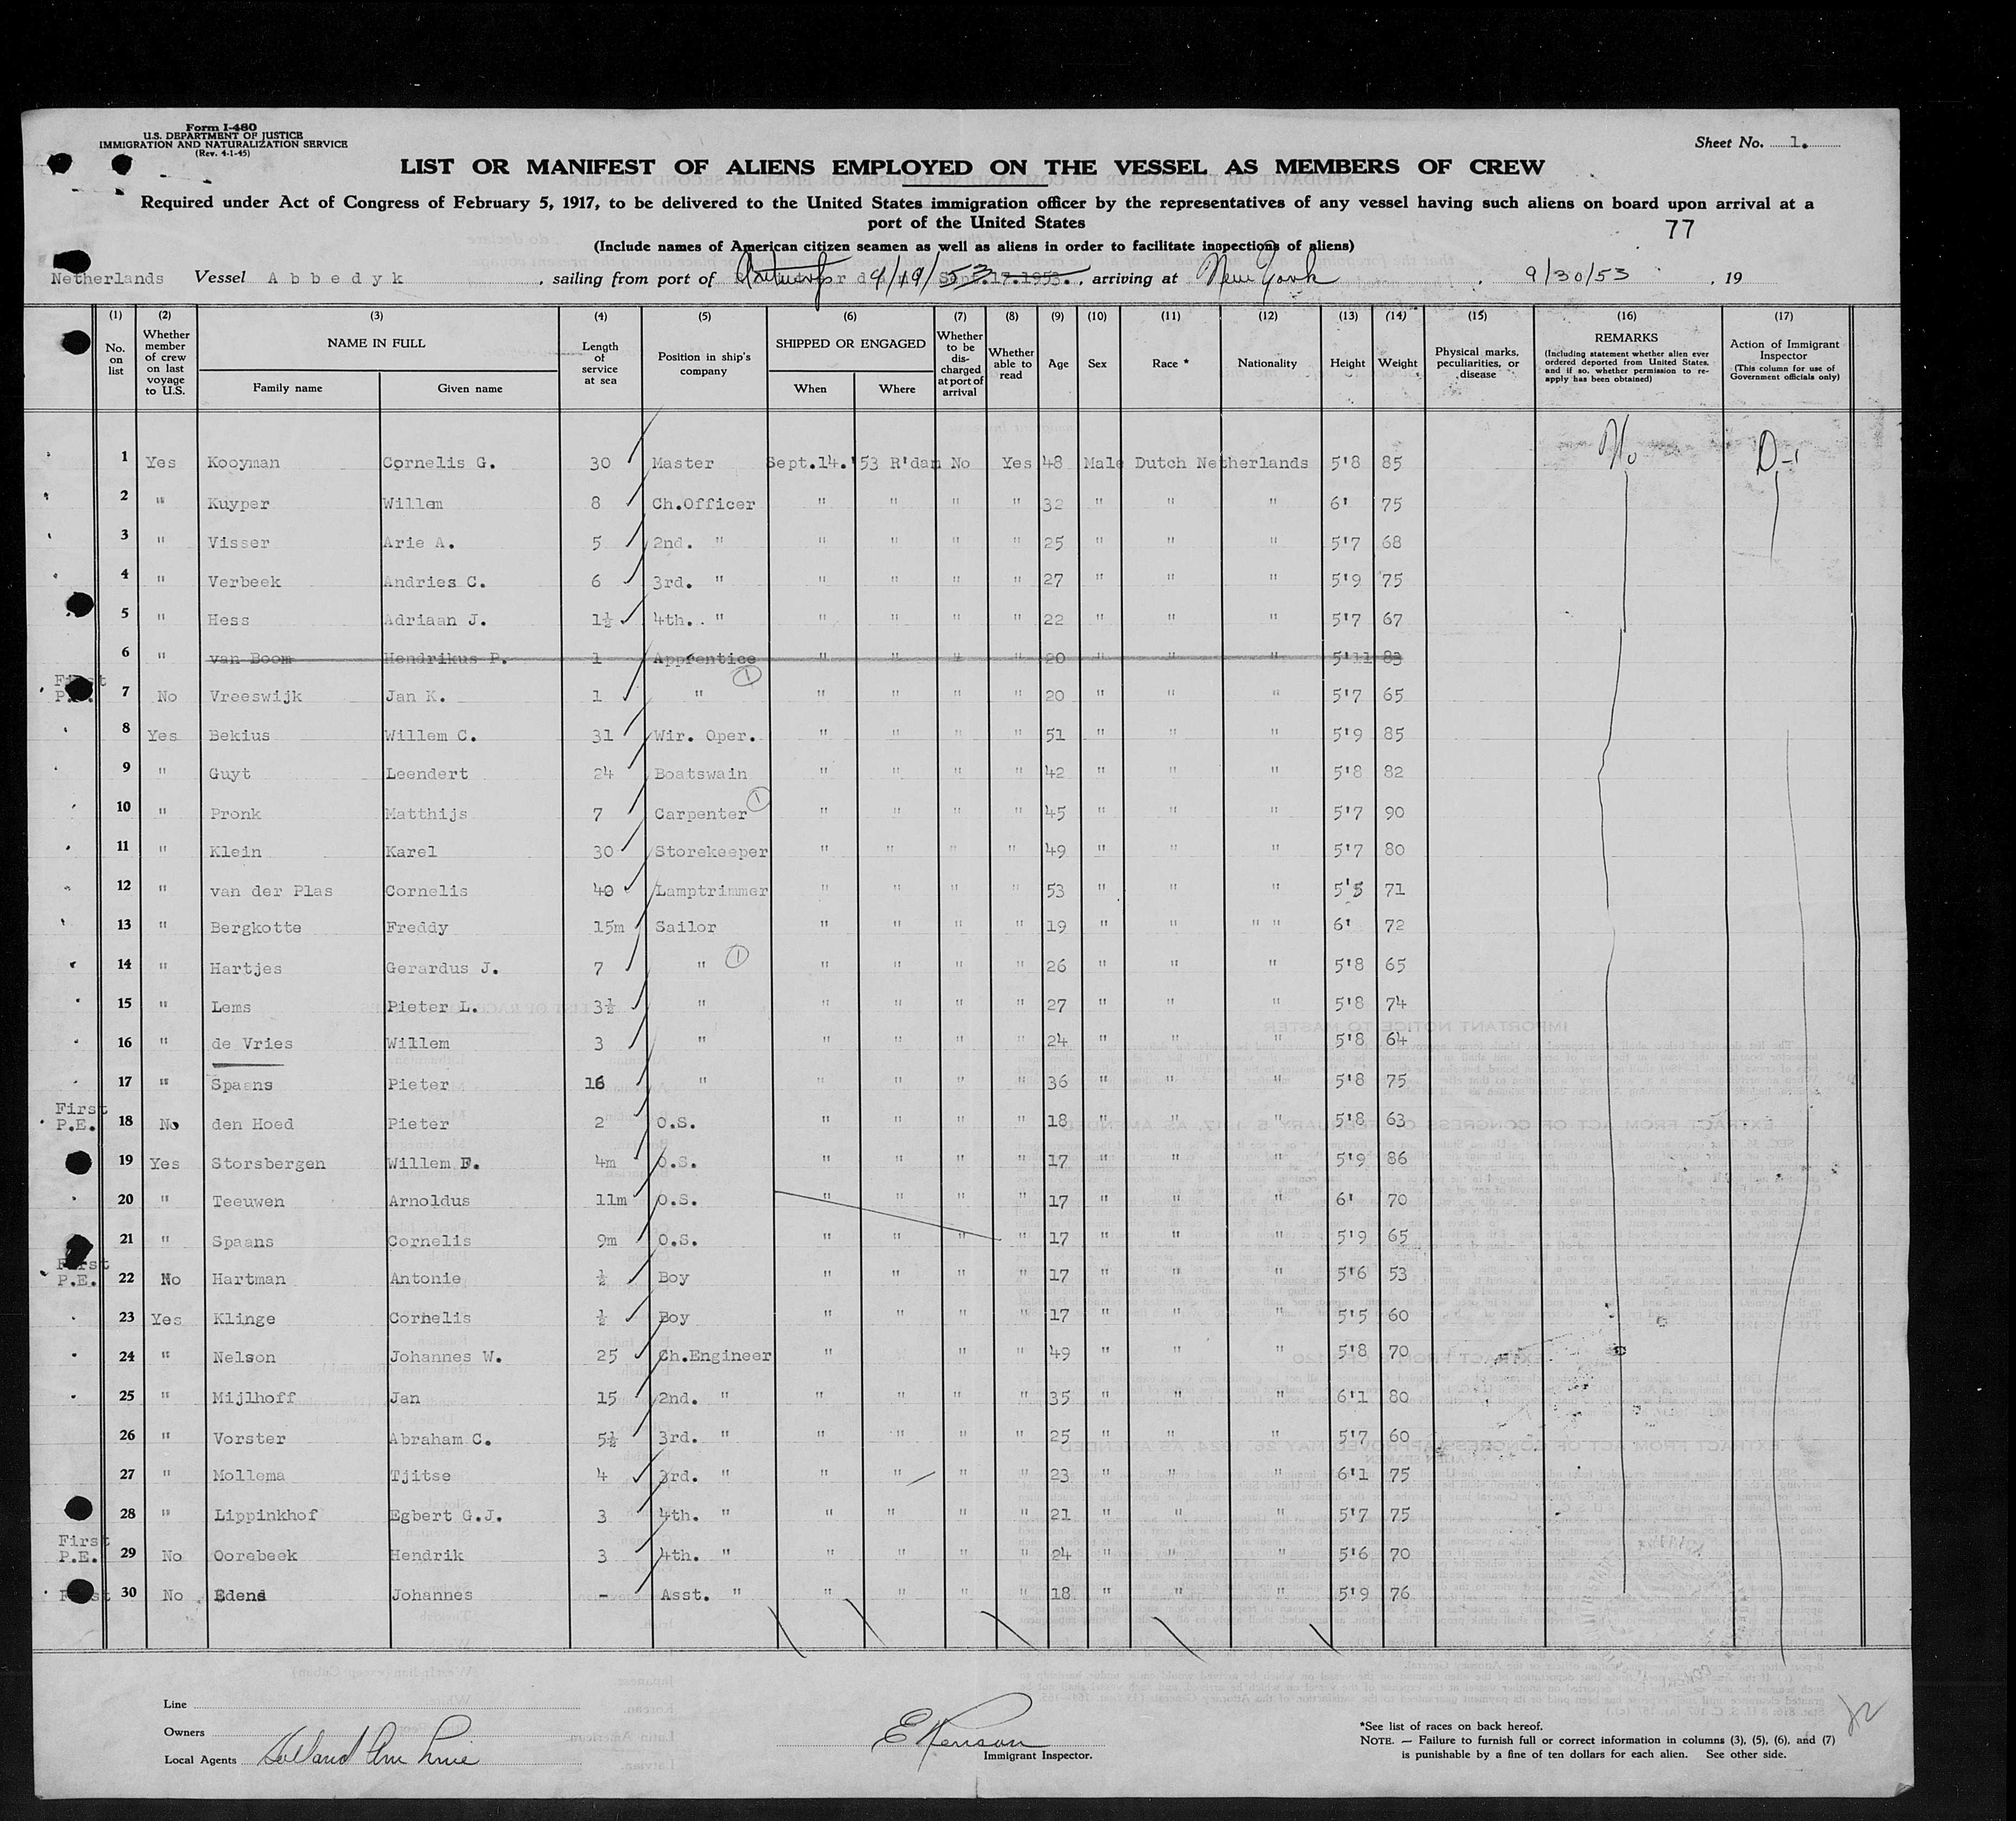 Form I-480
U.S. DEPARTMENT OF JUSTICE
IMMIGRATION AND NATURALIZATION SERVICE
(Rev. 4-1-45)
Sheet No. 1.
LIST OR MANIFEST OF ALIENS EMPLOYED ON THE VESSEL AS MEMBERS OF CREW
Required under Act of Congress of February 5, 1917, to be delivered to the United States immigration officer by the representatives of any vessel having such aliens on board upon arrival at a
port of the United States
77
(Include names of American citizen seamen as well as aliens in order to facilitate inspections of aliens)
Netherlands Vessel Abbedyk, sailing from port of Antwerp 9/19/53 Sept.17.1953., arriving at New York, 9/30/53, 19
(1) No. on list (2) Whether member of crew on last voyage to U.S. (3) NAME IN FULL Family name Given name (4) Length of service at sea (5) Position in ship's company (6) SHIPPED OR ENGAGED When Where (7) Whether to be discharged at port of arrival (8) Whether able to read (9) Age (10) Sex (11) Race * (12) Nationality (13) Height (14) Weight (15) Physical marks, peculiarities, or disease (16) REMARKS (Including statement whether alien ever ordered deported from United States, and if so, whether permission to re-apply has been obtained) (17) Action of Immigrant Inspector (This column for use of Government officials only)
1 Yes Kooyman Cornelis G. 30 Master Sept.14.'53 R'dam No Yes 48 Male Dutch Netherlands 5'8 85 No D-1
2 " Kuyper Willem 8 Ch.Officer " " " " 32 " " " 6' 75
3 " Visser Arie A. 5 2nd. " " " " " 25 " " " 5'7 68
4 " Verbeek Andries C. 6 3rd. " " " " " 27 " " " 5'9 75
5 " Hess Adriaan J. 1½ 4th. " " " " " 22 " " " 5'7 67
6 " van Boom Hendrikus P. 1 Apprentice " " " " 20 " " " 5'11 83
First P.E. 7 No Vreeswijk Jan K. 1 " 1 " " " " 20 " " " 5'7 65
8 Yes Bekius Willem C. 31 Wir. Oper. " " " " 51 " " " 5'9 85
9 " Guyt Leendert 24 Boatswain " " " " 42 " " " 5'8 82
10 " Pronk Matthijs 7 Carpenter 1 " " " " 45 " " " 5'7 90
11 " Klein Karel 30 Storekeeper " " " " 49 " " " 5'7 80
12 " van der Plas Cornelis 40 Lamptrimmer " " " " 53 " " " 5'5 71
13 " Bergkotte Freddy 15m Sailor " " " " 19 " " " " 6' 72
14 " Hartjes Gerardus J. 7 " 1 " " " " 26 " " " 5'8 65
15 " Lems Pieter L. 3½ " " " " " 27 " " " 5'8 74
16 " de Vries Willem 3 " " " " " 24 " " " 5'8 64
17 " Spaans Pieter 16 " " " " " 36 " " " 5'8 75
First P.E. 18 No den Hoed Pieter 2 O.S. " " " " 18 " " " 5'8 63
19 Yes Storsbergen Willem F. 4m O.S. " " " " 17 " " " 5'9 86
20 " Teeuwen Arnoldus 11m O.S. " " " " 17 " " " 6' 70
21 " Spaans Cornelis 9m O.S. " " " " 17 " " " 5'9 65
First P.E. 22 No Hartman Antonie ½ Boy " " " " 17 " " " 5'6 53
23 Yes Klinge Cornelis ½ Boy " " " " 17 " " " 5'5 60
24 " Nelson Johannes W. 25 Ch.Engineer " " " 49 " " " 5'8 70
25 " Mijlhoff Jan 15 2nd. " " " " " 35 " " " 6'1 80
26 " Vorster Abraham C. 5½ 3rd. " " " " " 25 " " " 5'7 60
27 " Mollema Tjitse 4 3rd. " " " " " 23 " " " 6'1 75
28 " Lippinkhof Egbert G.J. 3 4th. " " " " " 21 " " " 5'7 75
First P.E. 29 No Oorebeek Hendrik 3 4th. " " " " " 24 " " " 5'6 70
30 No Edens Johannes - Asst. " " " " " 18 " " " 5'9 76
Line
Owners
Local Agents Holland Am Line
Immigrant Inspector.
*See list of races on back hereof.
NOTE. — Failure to furnish full or correct information in columns (3), (5), (6), and (7)
is punishable by a fine of ten dollars for each alien. See other side.